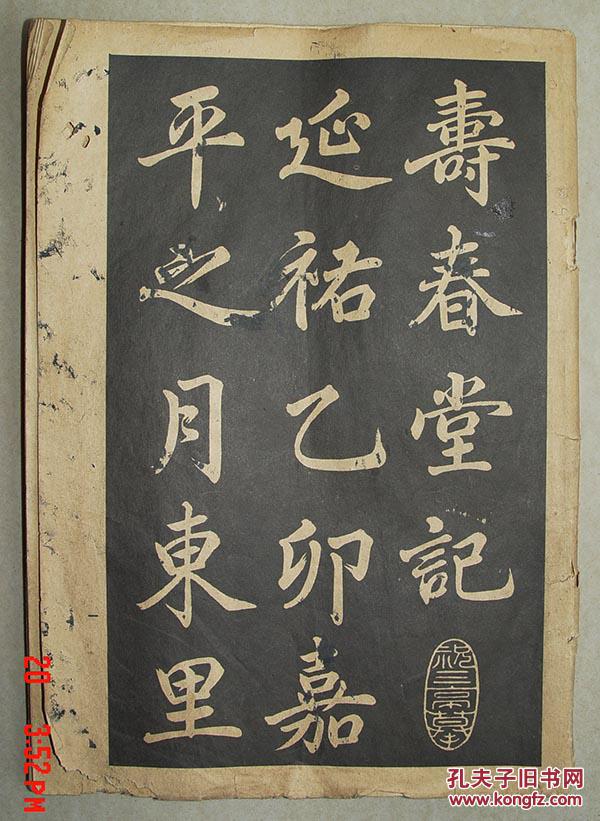 壽春堂記
延祐乙卯嘉
平之月東里
20 3:52 PM
孔夫子旧书网
www.kongfz.com